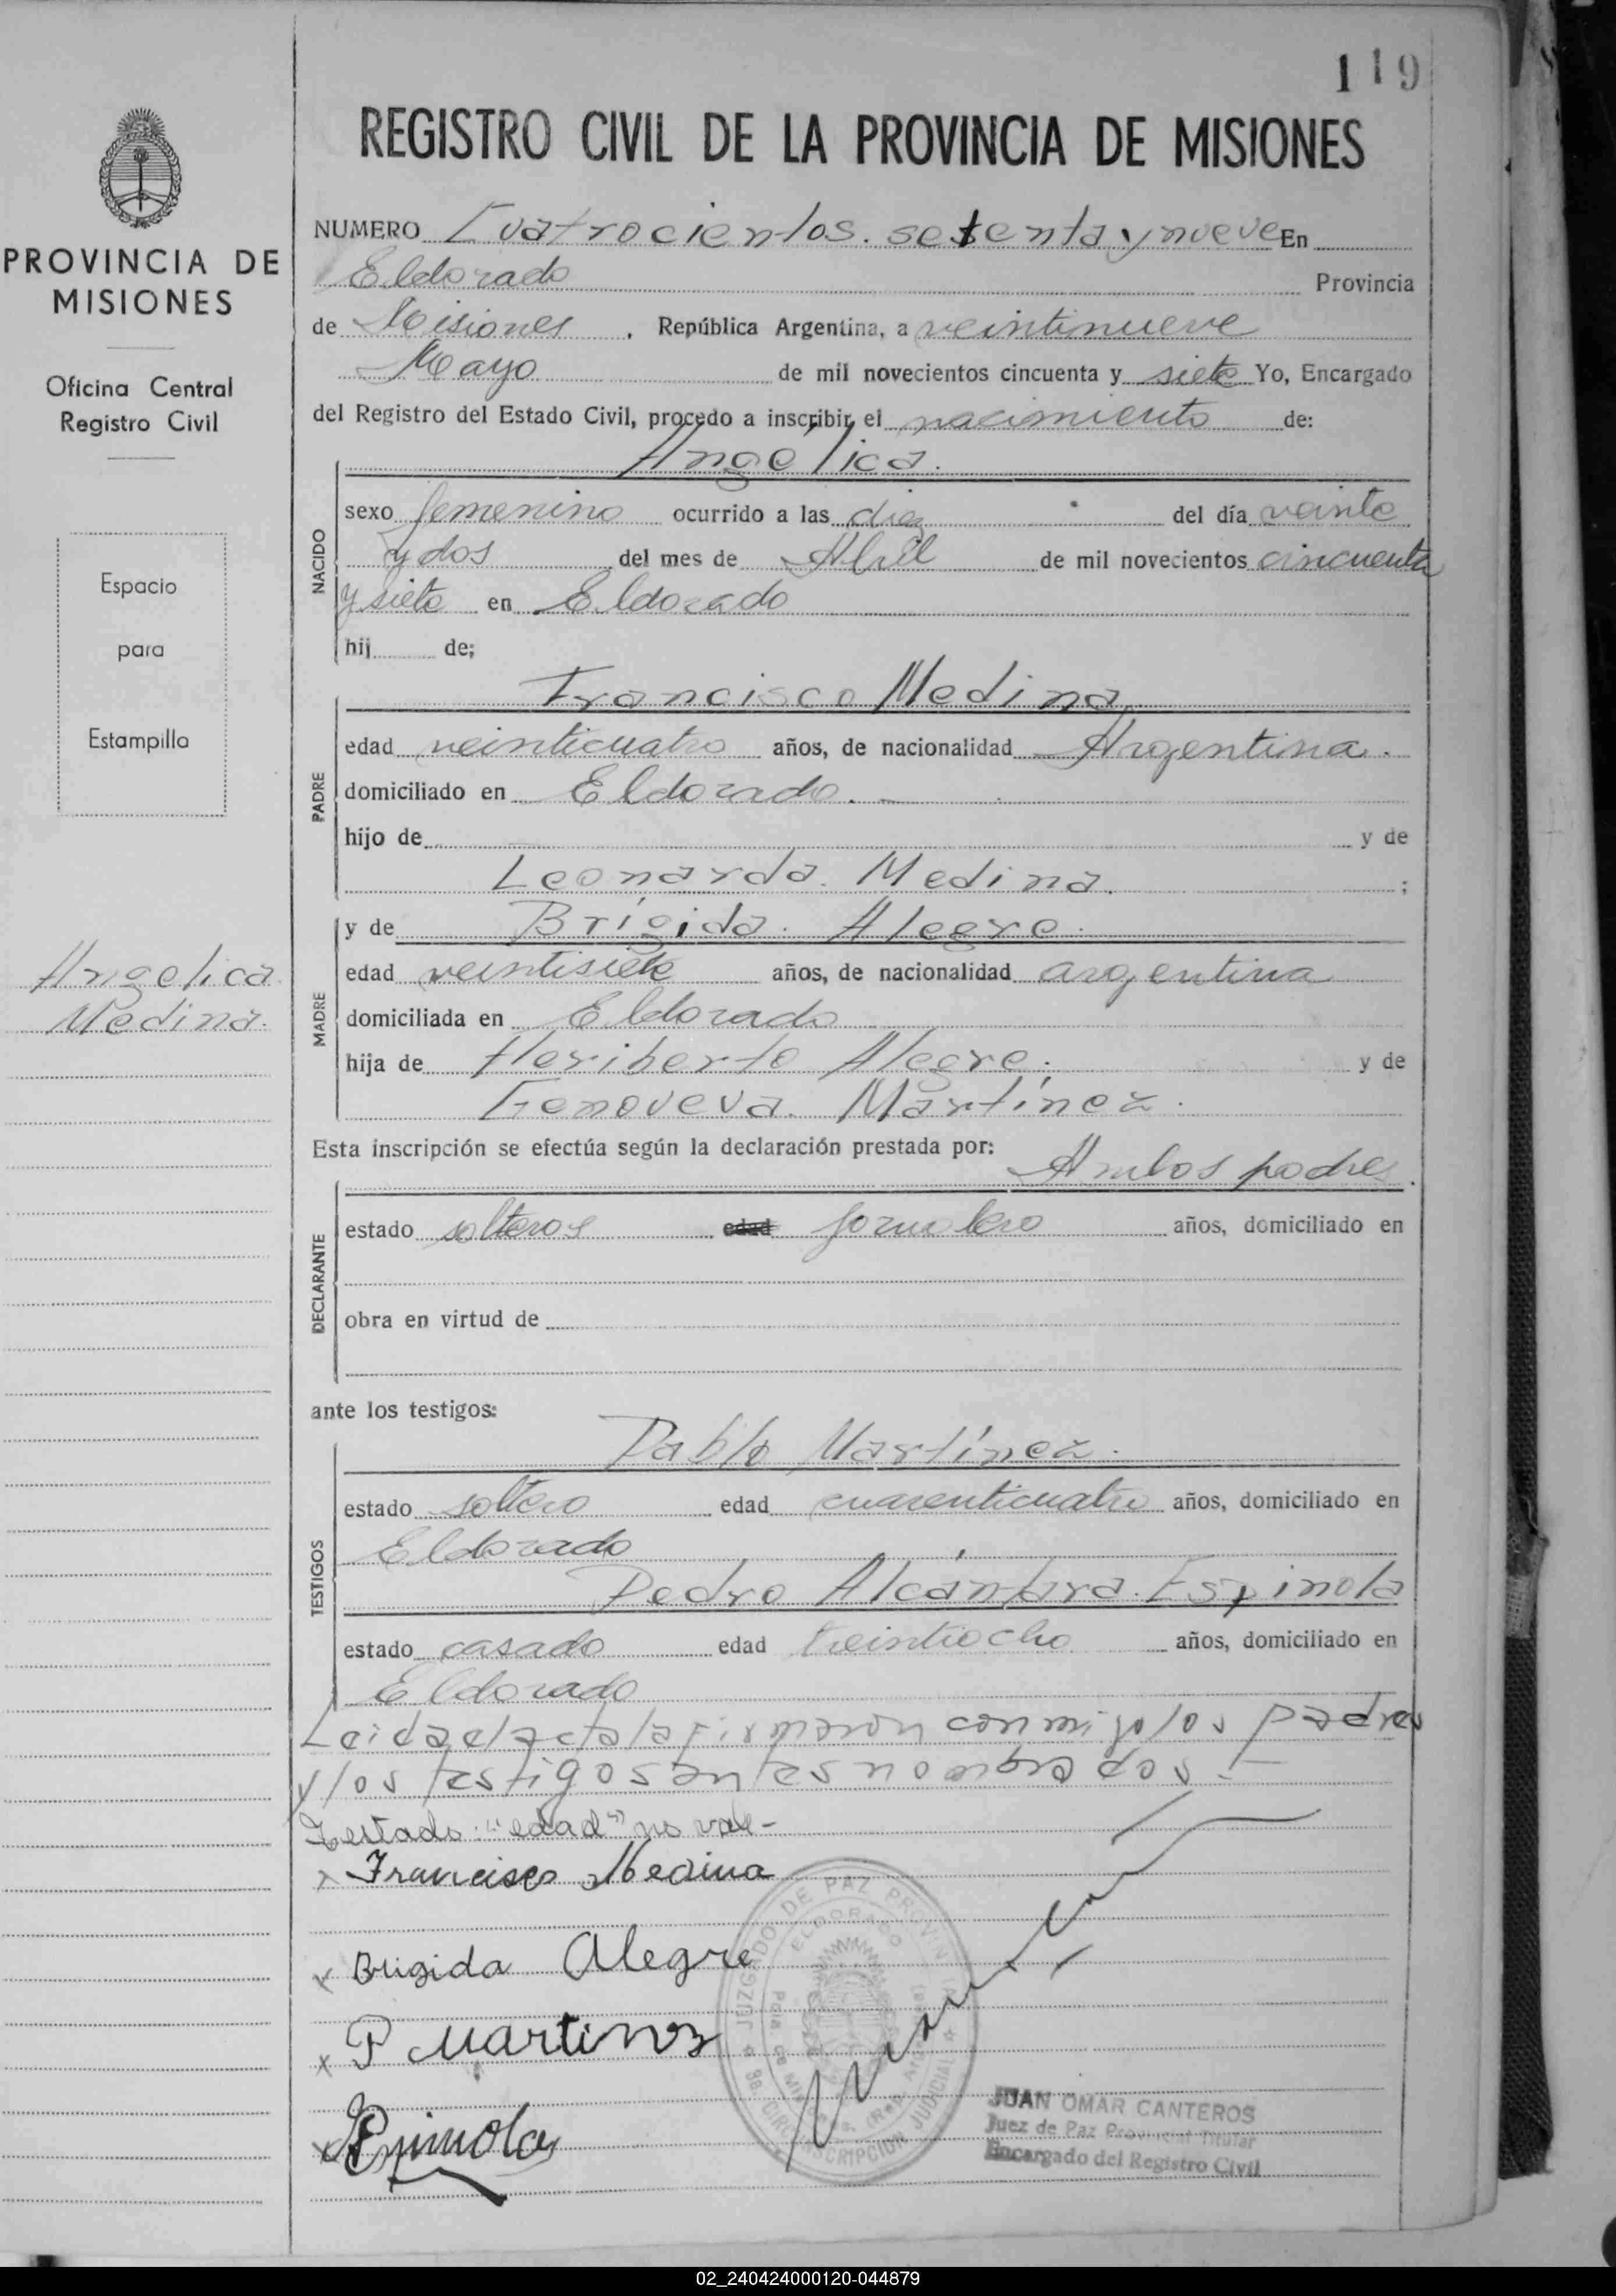 119
REGISTRO CIVIL DE LA PROVINCIA DE MISIONES
PROVINCIA DE
MISIONES
Oficina Central
Registro Civil
Espacio
para
Estampilla
Angelica
Medina.
NUMERO Cuatrocientos. setenta y nueve En
Eldorado Provincia
de Misiones, República Argentina, a veintinueve
Mayo de mil novecientos cincuenta y siete Yo, Encargado
del Registro del Estado Civil, procedo a inscribir el nacimiento de:
Angélica.
NACIDO
sexo femenino ocurrido a las diez del día veinte
y dos del mes de Abril de mil novecientos cincuenta
y siete en Eldorado
hij de;
Francisco Medina
PADRE
edad veinticuatro años, de nacionalidad Argentina.
domiciliado en Eldorado.
hijo de y de
Leonarda. Medina. ;
y de Brígida. Alegre.
MADRE
edad veintisiete años, de nacionalidad argentina
domiciliada en Eldorado
hija de Heriberto Alegre; y de
Genoveva. Martínez.
Esta inscripción se efectúa según la declaración prestada por:
Ambos padres.
DECLARANTE
estado solteros edad jornalero años, domiciliado en
obra en virtud de
ante los testigos:
Pablo Martínez.
TESTIGOS
estado soltero edad cuarenticuatro años, domiciliado en
Eldorado
Pedro Alcántara. Espinola
estado casado edad treintiocho años, domiciliado en
Eldorado
Leida el acta la firmaron conmigo los padres
y los testigos antes nombrados.-
Testado: "edad" no vale-
x Francisco Medina
x Brigida Alegre
x P Martinez
x Espinola
JUZGADO DE PAZ PROVINCIAL
ELDORADO
Pcia. de Misiones (Rep. Arg.)
3a. CIRCUNSCRIPCION JUDICIAL
JUAN OMAR CANTEROS
Juez de Paz Provincial Titular
Encargado del Registro Civil
02_240424000120-044879